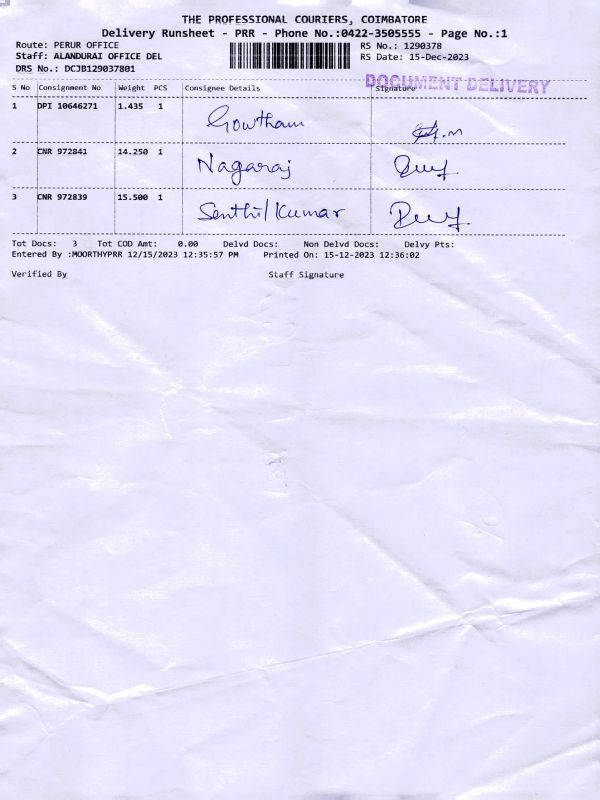 THE PROFESSIONAL COURIERS, COIMBATORE
Delivery Runsheet - PRR - Phone No.:0422-3505555 - Page No.:1
Route: PERUR OFFICE RS No.: 1290378
Staff: ALANDURAI OFFICE DEL RS Date: 15-Dec-2023
DRS No.: DCJB129037801
DOCUMENT DELIVERY
S No Consignment No Weight PCS Consignee Details Signature
1 DPI 10646271 1.435 1 Gowtham
2 CNR 972841 14.250 1 Nagaraj
3 CNR 972839 15.500 1 Senthil Kumar
Tot Docs: 3 Tot COD Amt: 0.00 Delvd Docs: Non Delvd Docs: Delvy Pts:
Entered By :MOORTHYPRR 12/15/2023 12:35:57 PM Printed On: 15-12-2023 12:36:02
Verified By Staff Signature